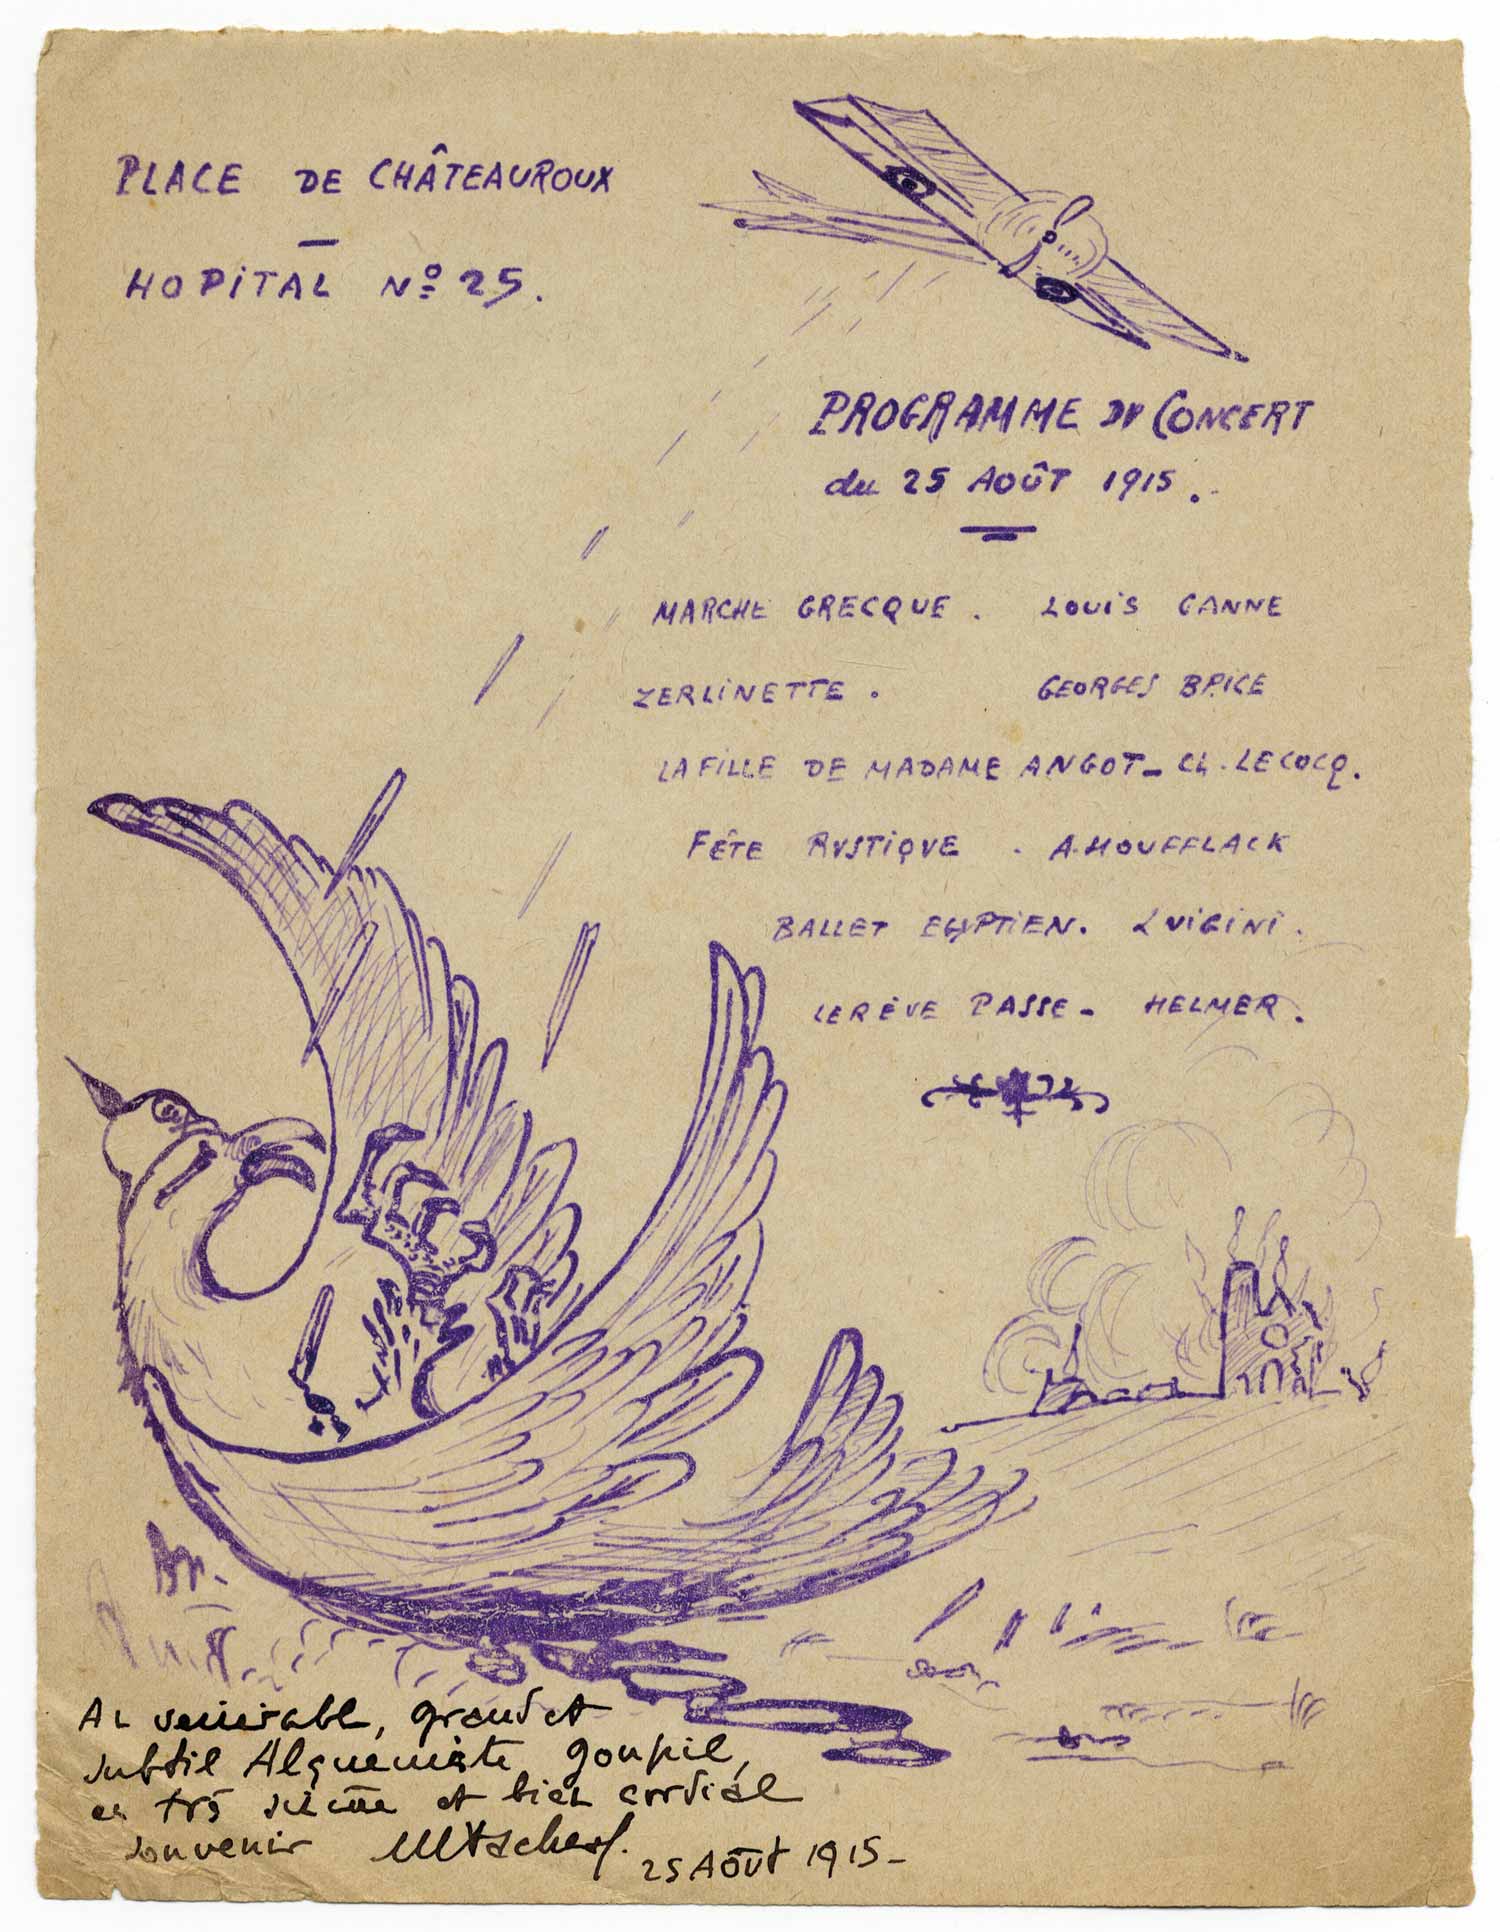 PLACE DE CHÂTEAUROUX
HOPITAL Nº 25.
PROGRAMME DU CONCERT
du 25 AOÛT 1915.
MARCHE GRECQUE. LOUIS GANNE
ZERLINETTE. GEORGES BRICE
LA FILLE DE MADAME ANGOT_ CH. LECOCQ.
FÊTE RUSTIQUE . A. HOUFFLACK
BALLET EGYPTIEN. LUIGINI.
LE RÊVE PASSE_ HELMER.
Au vénérable, grand et
subtil Alquemiste goupil,
en très sincère et bien cordial
souvenir
25 AOÛT 1915_